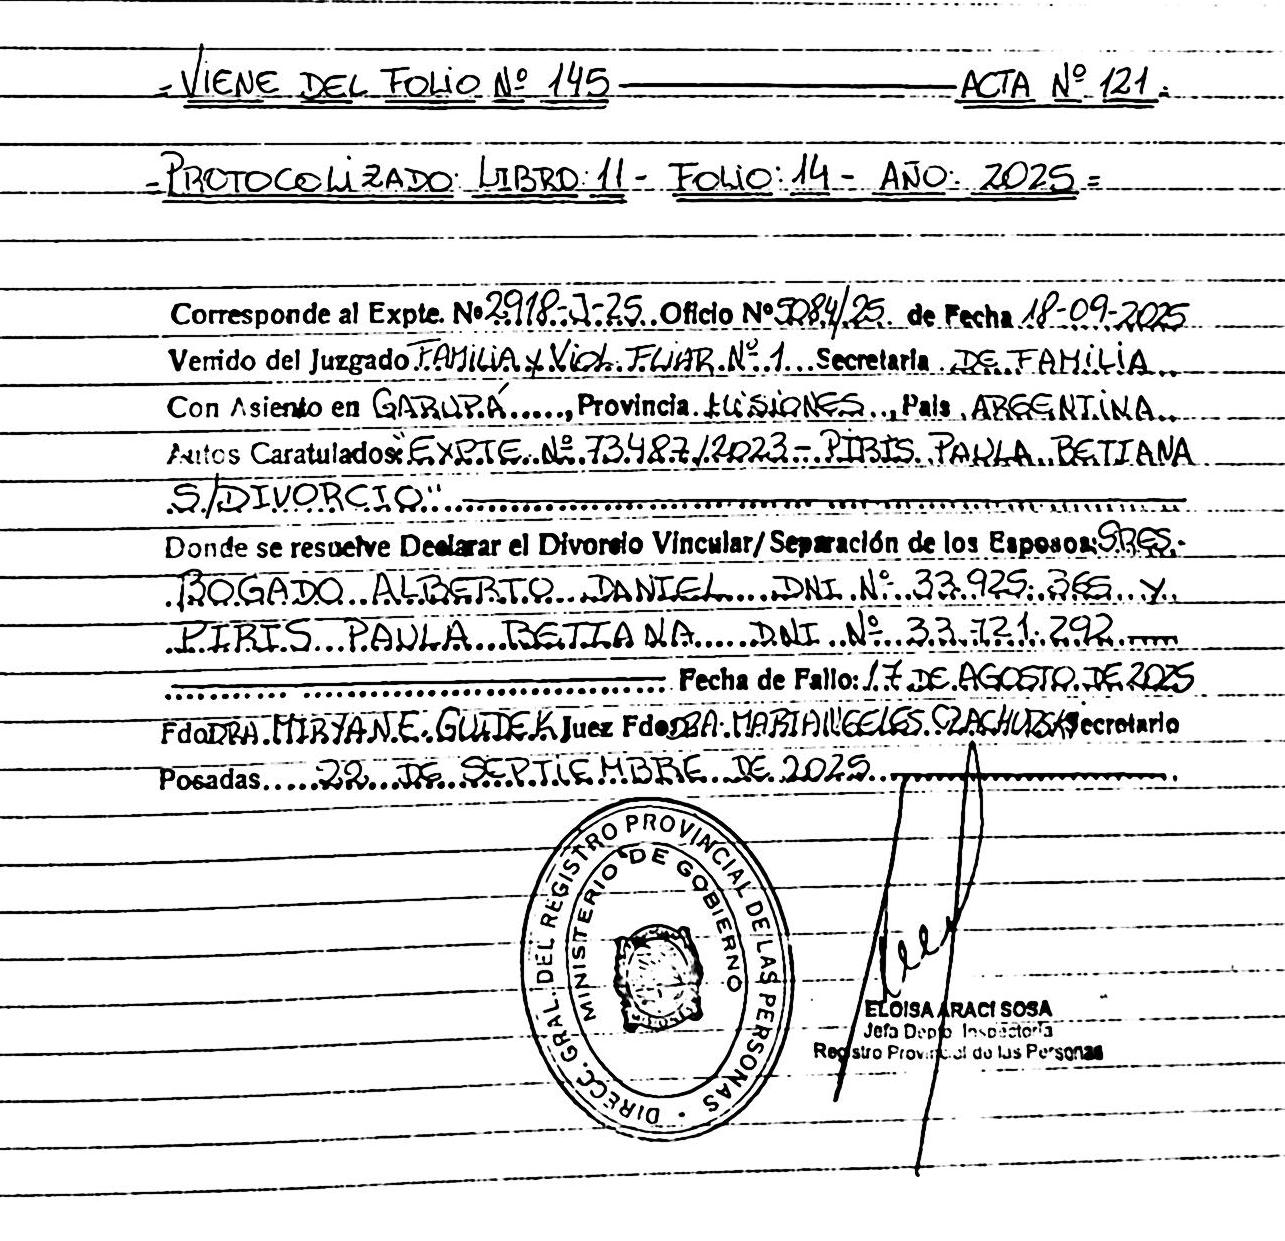 =VIENE DEL FOLIO Nº 145 ACTA Nº 121=
=PROTOCOLIZADO: LIBRO: 11 - FOLIO: 14 - AÑO: 2025=
Corresponde al Expte. Nº 2918-J-25. Oficio Nº 5084/25 de Fecha 18-09-2025
Venido del Juzgado FAMILIA y VIOL. FLIAR. Nº 1... Secretaría DE FAMILIA
Con Asiento en GARUPÁ....., Provincia MISIONES.., País ARGENTINA..
Autos Caratulados: "EXPTE. Nº 73487/2023 - PIRIS PAULA BETIANA
S/DIVORCIO"
Donde se resuelve Declarar el Divorcio Vincular/Separación de los Esposos: SRES.-
BOGADO ALBERTO DANIEL DNI Nº 33.925.365 y
PIRIS PAULA BETIANA DNI Nº 33.721.292
Fecha de Fallo: 17 DE AGOSTO DE 2025
Fdo DRA. MIRYAN E. GUIDEK Juez Fdo DRA. MARIANGELES Secretario
Posadas.....22 DE SEPTIEMBRE DE 2025.
DIRECC. GRAL. DEL REGISTRO PROVINCIAL DE LAS PERSONAS
MINISTERIO DE GOBIERNO
ELOISA ARACI SOSA
Jefa Depto Inspectoría
Registro Provincial de las Personas